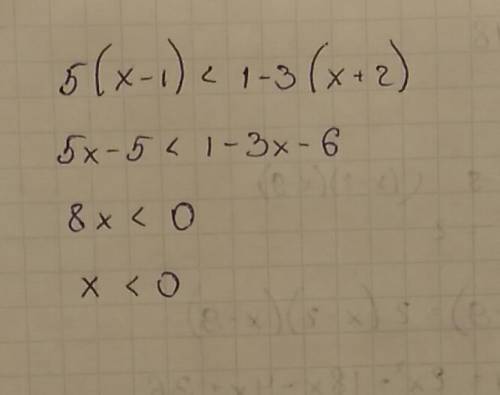 5(x-1) < 1-3(x+2)
5x-5 < 1-3x-6
8x < 0
x < 0